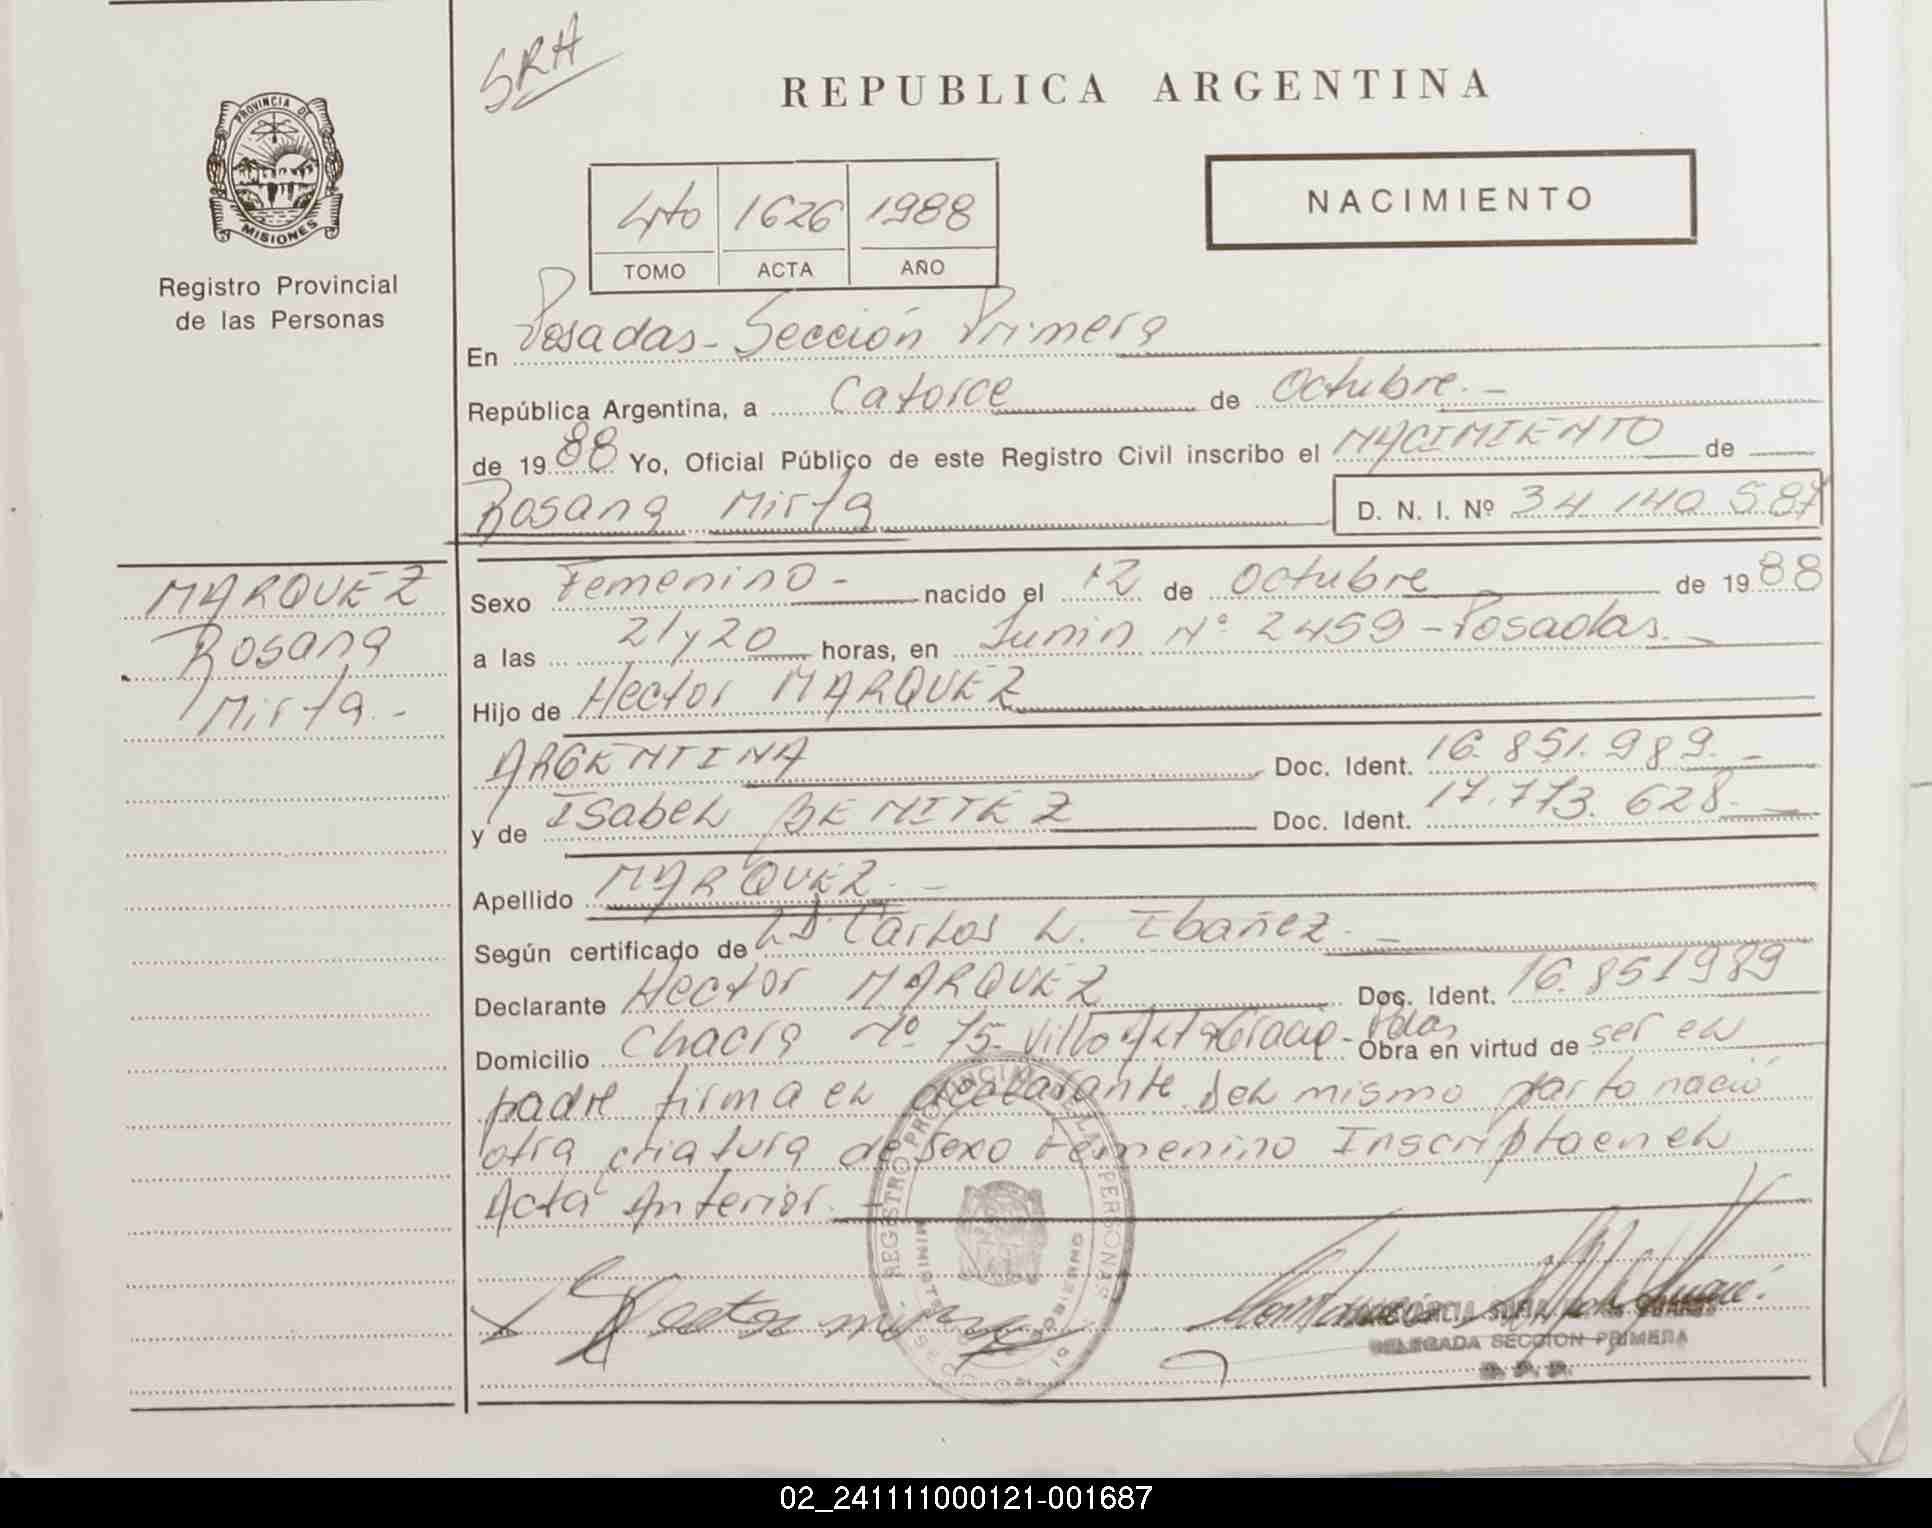 SRA
REPUBLICA ARGENTINA
PROVINCIA DE
MISIONES
Registro Provincial
de las Personas
4to 1626 1988
TOMO ACTA AÑO
NACIMIENTO
En Posadas - Sección Primera
República Argentina, a Catorce de Octubre. -
de 1988 Yo, Oficial Público de este Registro Civil inscribo el NACIMIENTO de
Rosana Mirta D. N. I. Nº 34 140 587
MARQUEZ
Rosana
Mirta. -
Sexo Femenino - nacido el 12 de Octubre de 1988
a las 21 y 20 horas, en Junin Nº 2459 - Posadas. -
Hijo de Hector MARQUEZ
ARGENTINA Doc. Ident. 16.851.989. -
y de Isabel BENITEZ Doc. Ident. 17.773.628. -
Apellido MARQUEZ. -
Según certificado de Carlos L. Ibañez. -
Declarante Hector MARQUEZ Doc. Ident. 16.851989
Domicilio Chacra Nº 75 - Villa - Pdas Obra en virtud de ser el
padre firma el declarante. Del mismo parto nació
otra criatura de Sexo Femenino Inscripta en el
Acta Anterior. -
REGISTRO PROVINCIAL DE LAS PERSONAS
DELEGADA SECCION PRIMERA
02_241111000121-001687